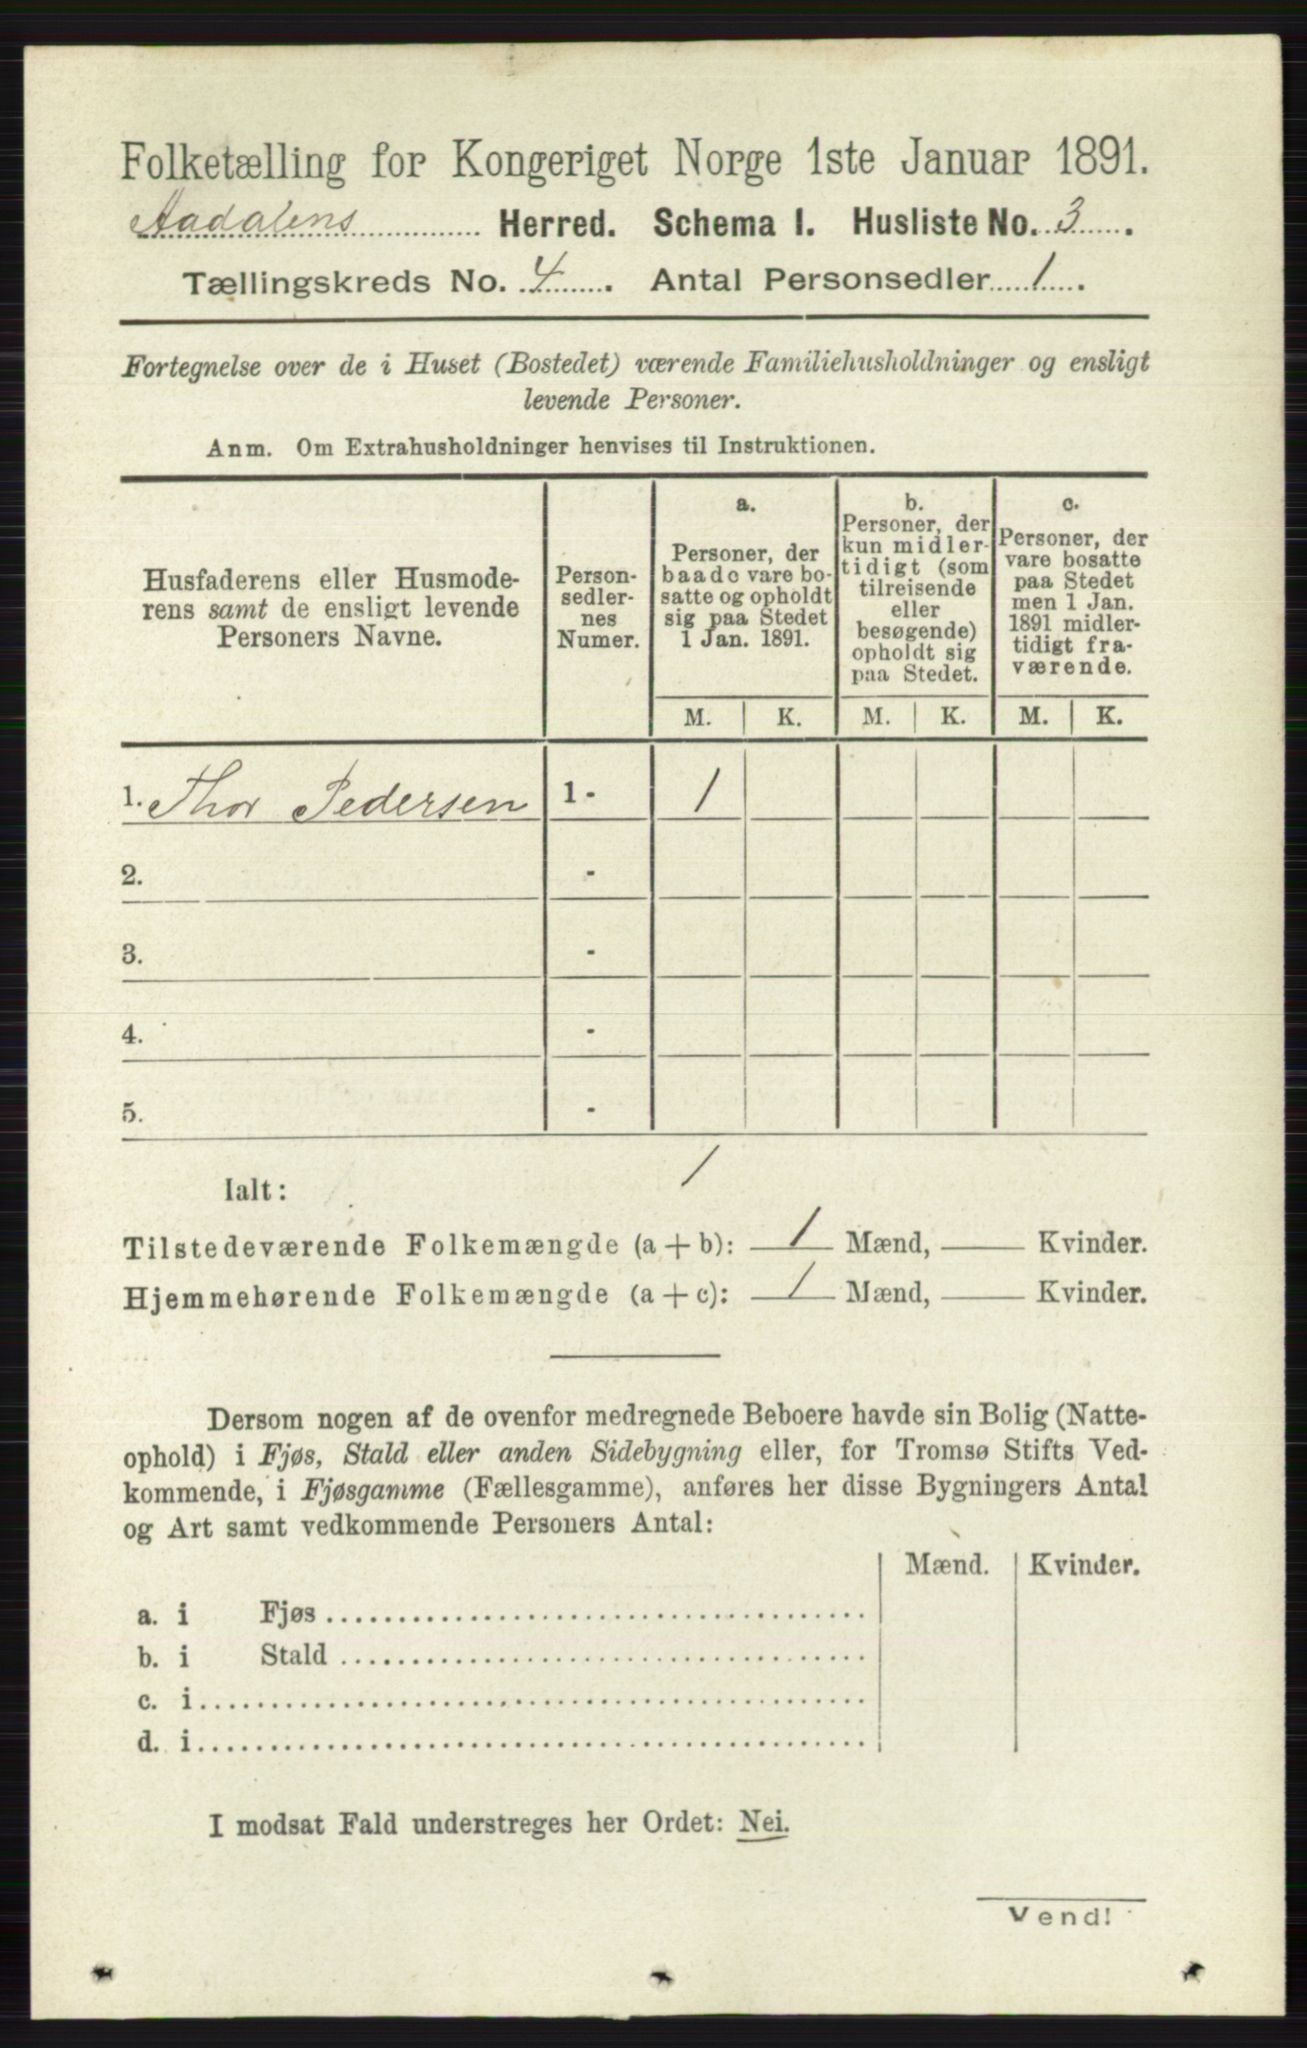 Folketælling for Kongeriget Norge 1ste Januar 1891.
Aadalens Herred. Schema I. Husliste No. 3.
Tællingskreds No. 4. Antal Personsedler 1.
Fortegnelse over de i Huset (Bostedet) værende Familiehusholdninger og ensligt
levende Personer.
Anm. Om Extrahusholdninger henvises til Instruktionen.
Husfaderens eller Husmode-
rens samt de ensligt levende
Personers Navne.
Person-
sedler-
nes
Numer.
a.
Personer, der
baade vare bo-
satte og opholdt
sig paa Stedet
1 Jan. 1891.
b.
Personer, der
kun midler-
tidigt (som
tilreisende
eller
besøgende)
opholdt sig
paa Stedet.
c.
Personer, der
vare bosatte
paa Stedet
men 1 Jan.
1891 midler-
tidigt fra-
værende.
M. K. M. K. M. K.
1. Thor Pedersen 1 - 1
2. -
3. -
4. -
5. -
Ialt: 1
Tilstedeværende Folkemængde (a + b): 1 Mænd, — Kvinder.
Hjemmehørende Folkemængde (a + c): 1 Mænd, — Kvinder.
Dersom nogen af de ovenfor medregnede Beboere havde sin Bolig (Natte-
ophold) i Fjøs, Stald eller anden Sidebygning eller, for Tromsø Stifts Ved-
kommende, i Fjøsgamme (Fællesgamme), anføres her disse Bygningers Antal
og Art samt vedkommende Personers Antal:
Mænd. Kvinder.
a. i Fjøs
b. i Stald
c. i
d. i
I modsat Fald understreges her Ordet: Nei.
Vend!